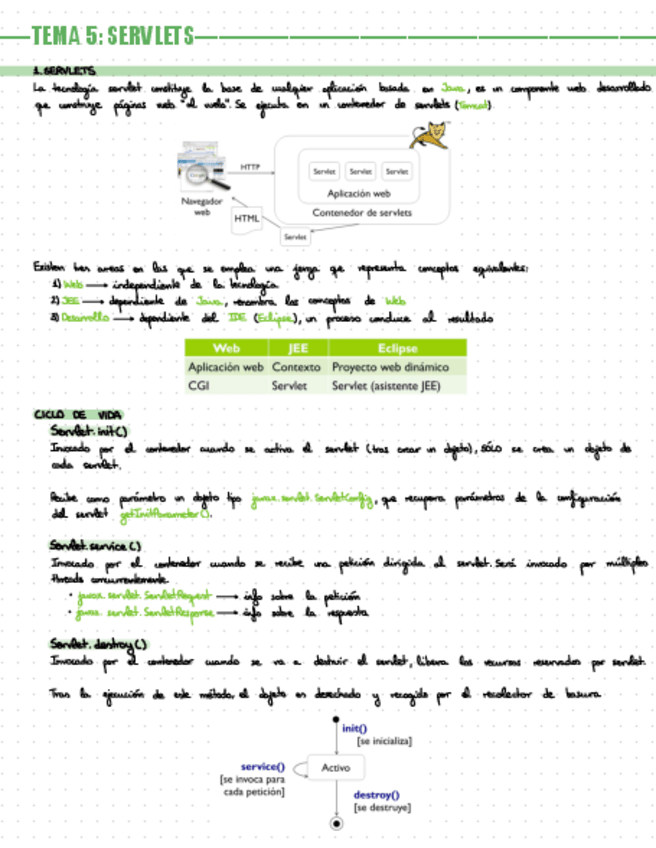 TEMA 5: SERVLETS
1. SERVLETS
La tecnología servlet constituye la base de cualquier aplicación basada en Java, es un componente web desarrollado
que construye páginas web "al vuelo". Se ejecuta en un contenedor de servlets (Tomcat)
HTTP
Servlet Servlet Servlet
Aplicación web
Contenedor de servlets
Navegador
web
HTML
Servlet
Existen tres areas en las que se emplea una jerga que representa conceptos equivalentes:
1) Web → independiente de la tecnología
2) JEE → dependiente de Java, renombra los conceptos de Web
3) Desarrollo → dependiente del IDE (Eclipse), un proceso conduce al resultado
Web JEE Eclipse
Aplicación web Contexto Proyecto web dinámico
CGI Servlet Servlet (asistente JEE)
CICLO DE VIDA
Servlet.init()
Invocado por el contenedor cuando se activa el servlet (tras crear un objeto), SÓLO se crea un objeto de
cada servlet.
Recibe como parámetro un objeto tipo javax.servlet.ServletConfig, que recupera parámetros de la configuración
del servlet getInitParameter().
Servlet.service()
Invocado por el contenedor cuando se recibe una petición dirigida al servlet. Será invocado por múltiples
threads concurrentemente.
· javax.servlet.ServletRequest → info sobre la petición
· javax.servlet.ServletResponse → info sobre la respuesta
Servlet.destroy()
Invocado por el contenedor cuando se va a destruir el servlet, libera los recursos reservados por servlet.
Tras la ejecución de este método, el objeto es desechado y recogido por el recolector de basura
init()
[se inicializa]
service()
[se invoca para
cada petición]
Activo
destroy()
[se destruye]